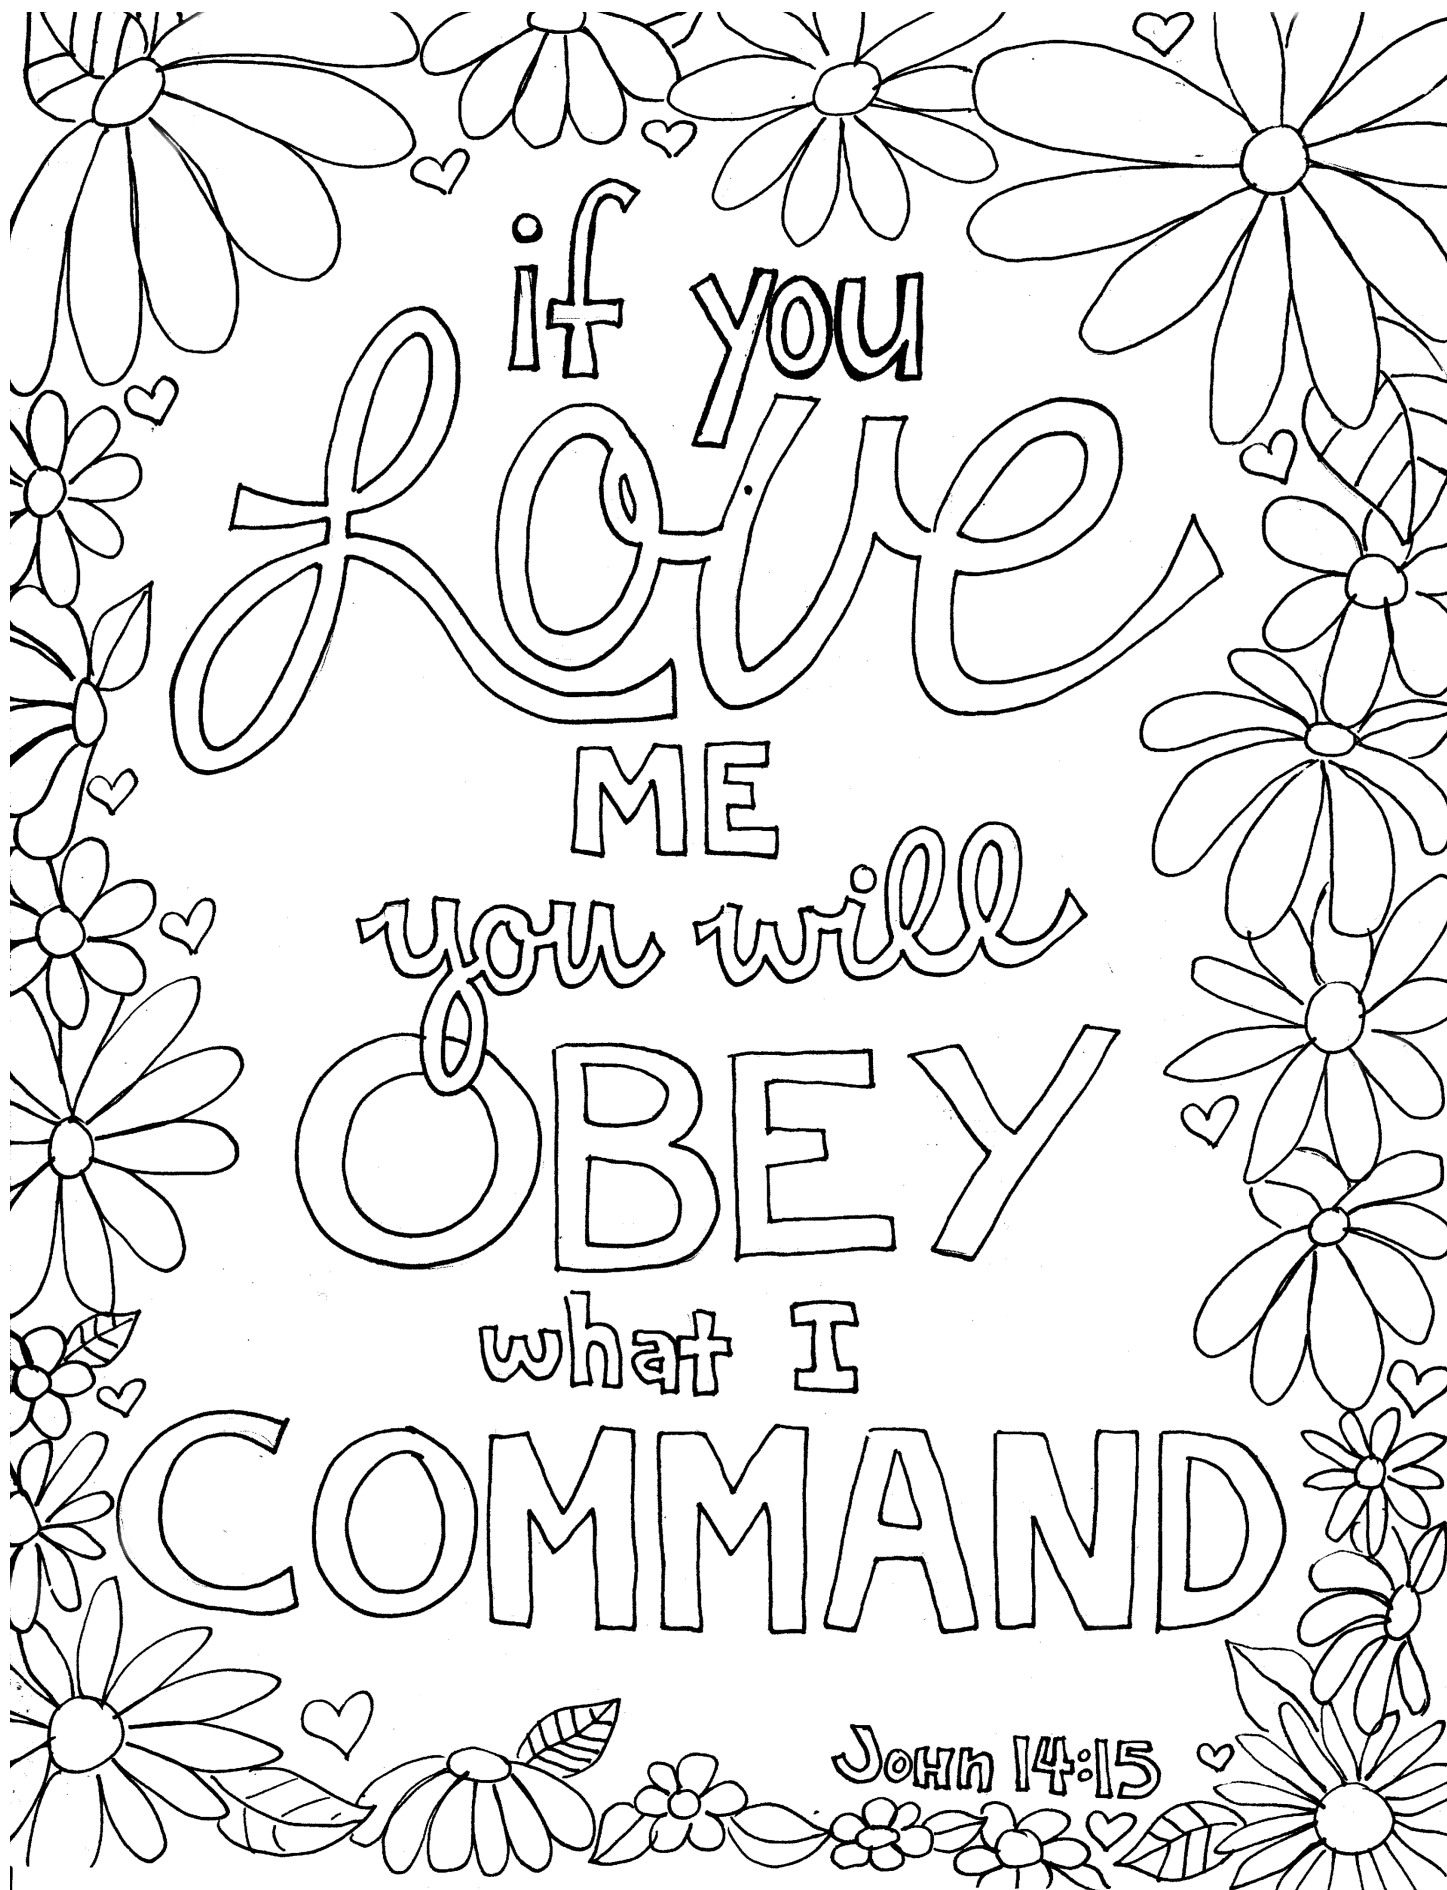 if you
Love
ME
you will
OBEY
what I
COMMAND
JoHn 14:15